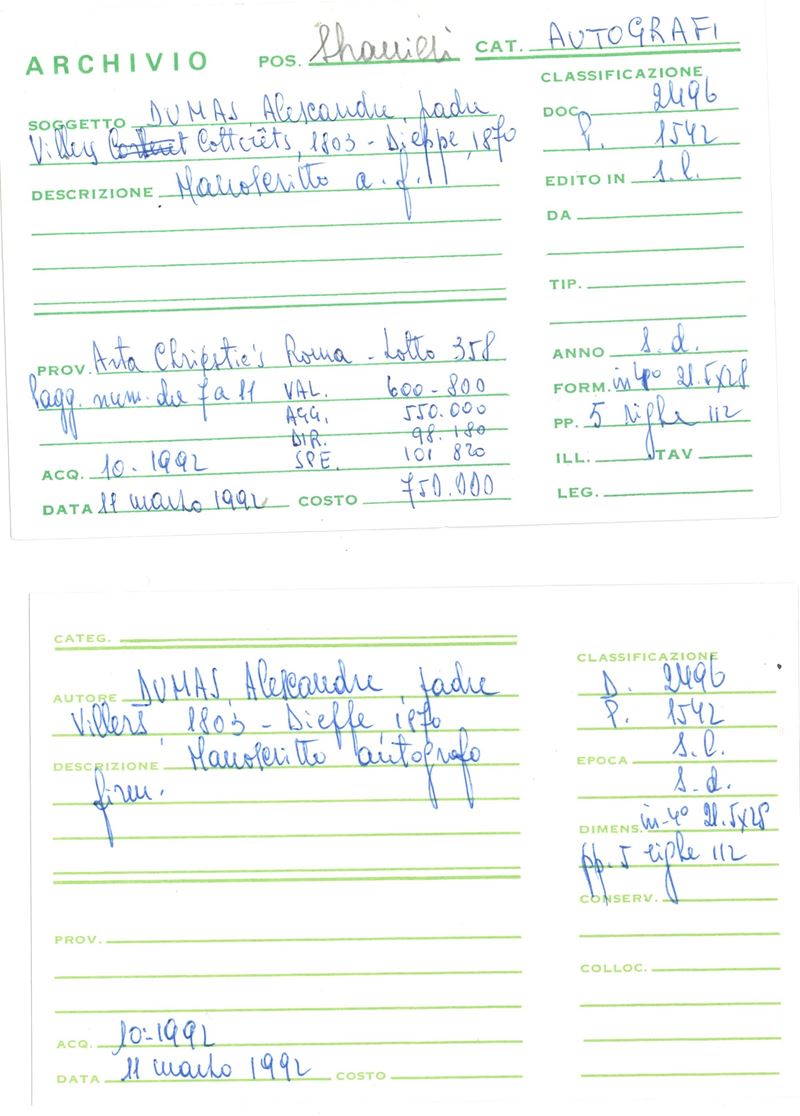 ARCHIVIO
POS.
CAT. AUTOGRAFI
CLASSIFICAZIONE
SOGGETTO DUMAS, Alexandre, padre
Villers Cotterêts, 1803 - Dieppe, 1870
DESCRIZIONE Manoscritto a. f.
DOC. 2496
P. 1542
EDITO IN s.l.
DA
TIP.
ANNO s.d.
FORM. in-4° 21.5x28
PP. 5 righe 112
ILL: TAV
LEG.
PROV. Asta Christie's Roma - Lotto 358
Pagg. num. da 7 a 11 VAL. 600-800
AGG. 550.000
DIR. 98.180
SPE. 101 820
ACQ. 10.1992
DATA 11 marzo 1992 COSTO 750.000
CATEG.
AUTORE DUMAS, Alexandre, padre
Villers, 1803 - Dieppe, 1870
DESCRIZIONE Manoscritto autografo
firm.
PROV.
ACQ. 10-1992
DATA 11 marzo 1992 COSTO
CLASSIFICAZIONE
D. 2496
P. 1542
EPOCA s.l.
s.d.
DIMENS. in-4° 21.5x28
pp. 5 righe 112
CONSERV.
COLLOC.